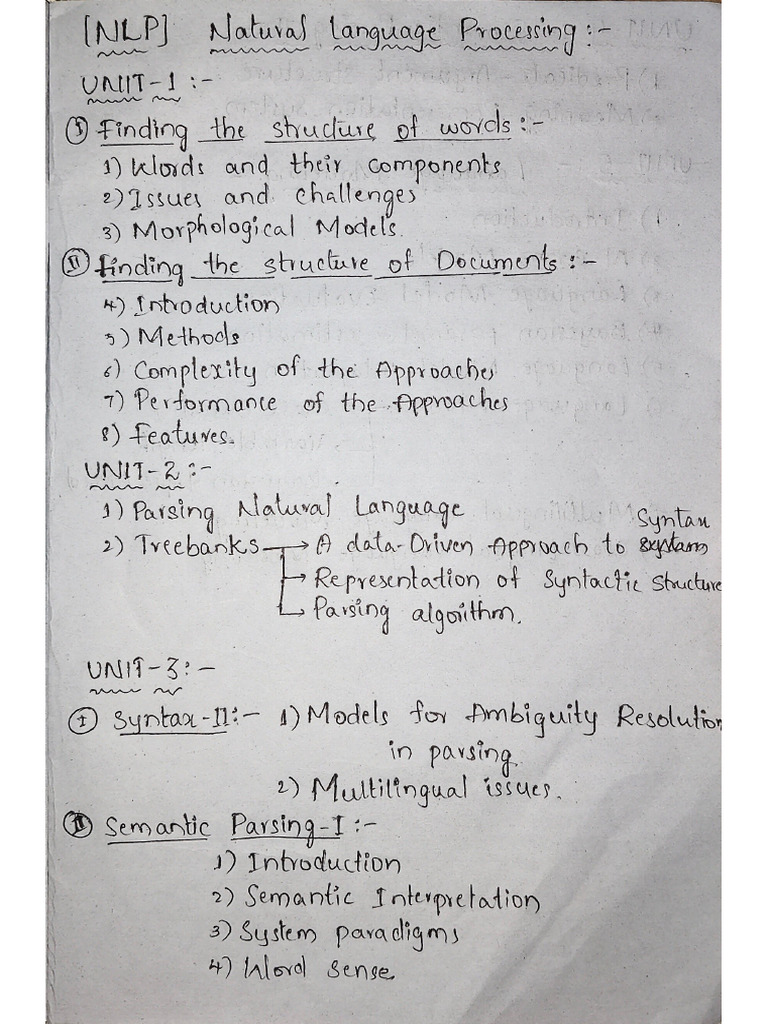 [NLP] Natural Language Processing :-
UNIT-1 :-
I Finding the structure of words :-
1) Words and their components
2) Issues and challenges
3) Morphological Models.
II Finding the structure of Documents :-
4) Introduction
5) Methods
6) Complexity of the Approaches
7) Performance of the Approaches
8) Features.
UNIT-2 :-
1) Parsing Natural Language
Syntax
2) Treebanks → A data-Driven Approach to
→ Representation of Syntactic Structure
→ Parsing algorithm.
UNIT-3 :-
I Syntax-II :- 1) Models for Ambiguity Resolution
in parsing.
2) Multilingual issues.
II Semantic Parsing-I :-
1) Introduction
2) Semantic Interpretation
3) System paradigms
4) Word Sense